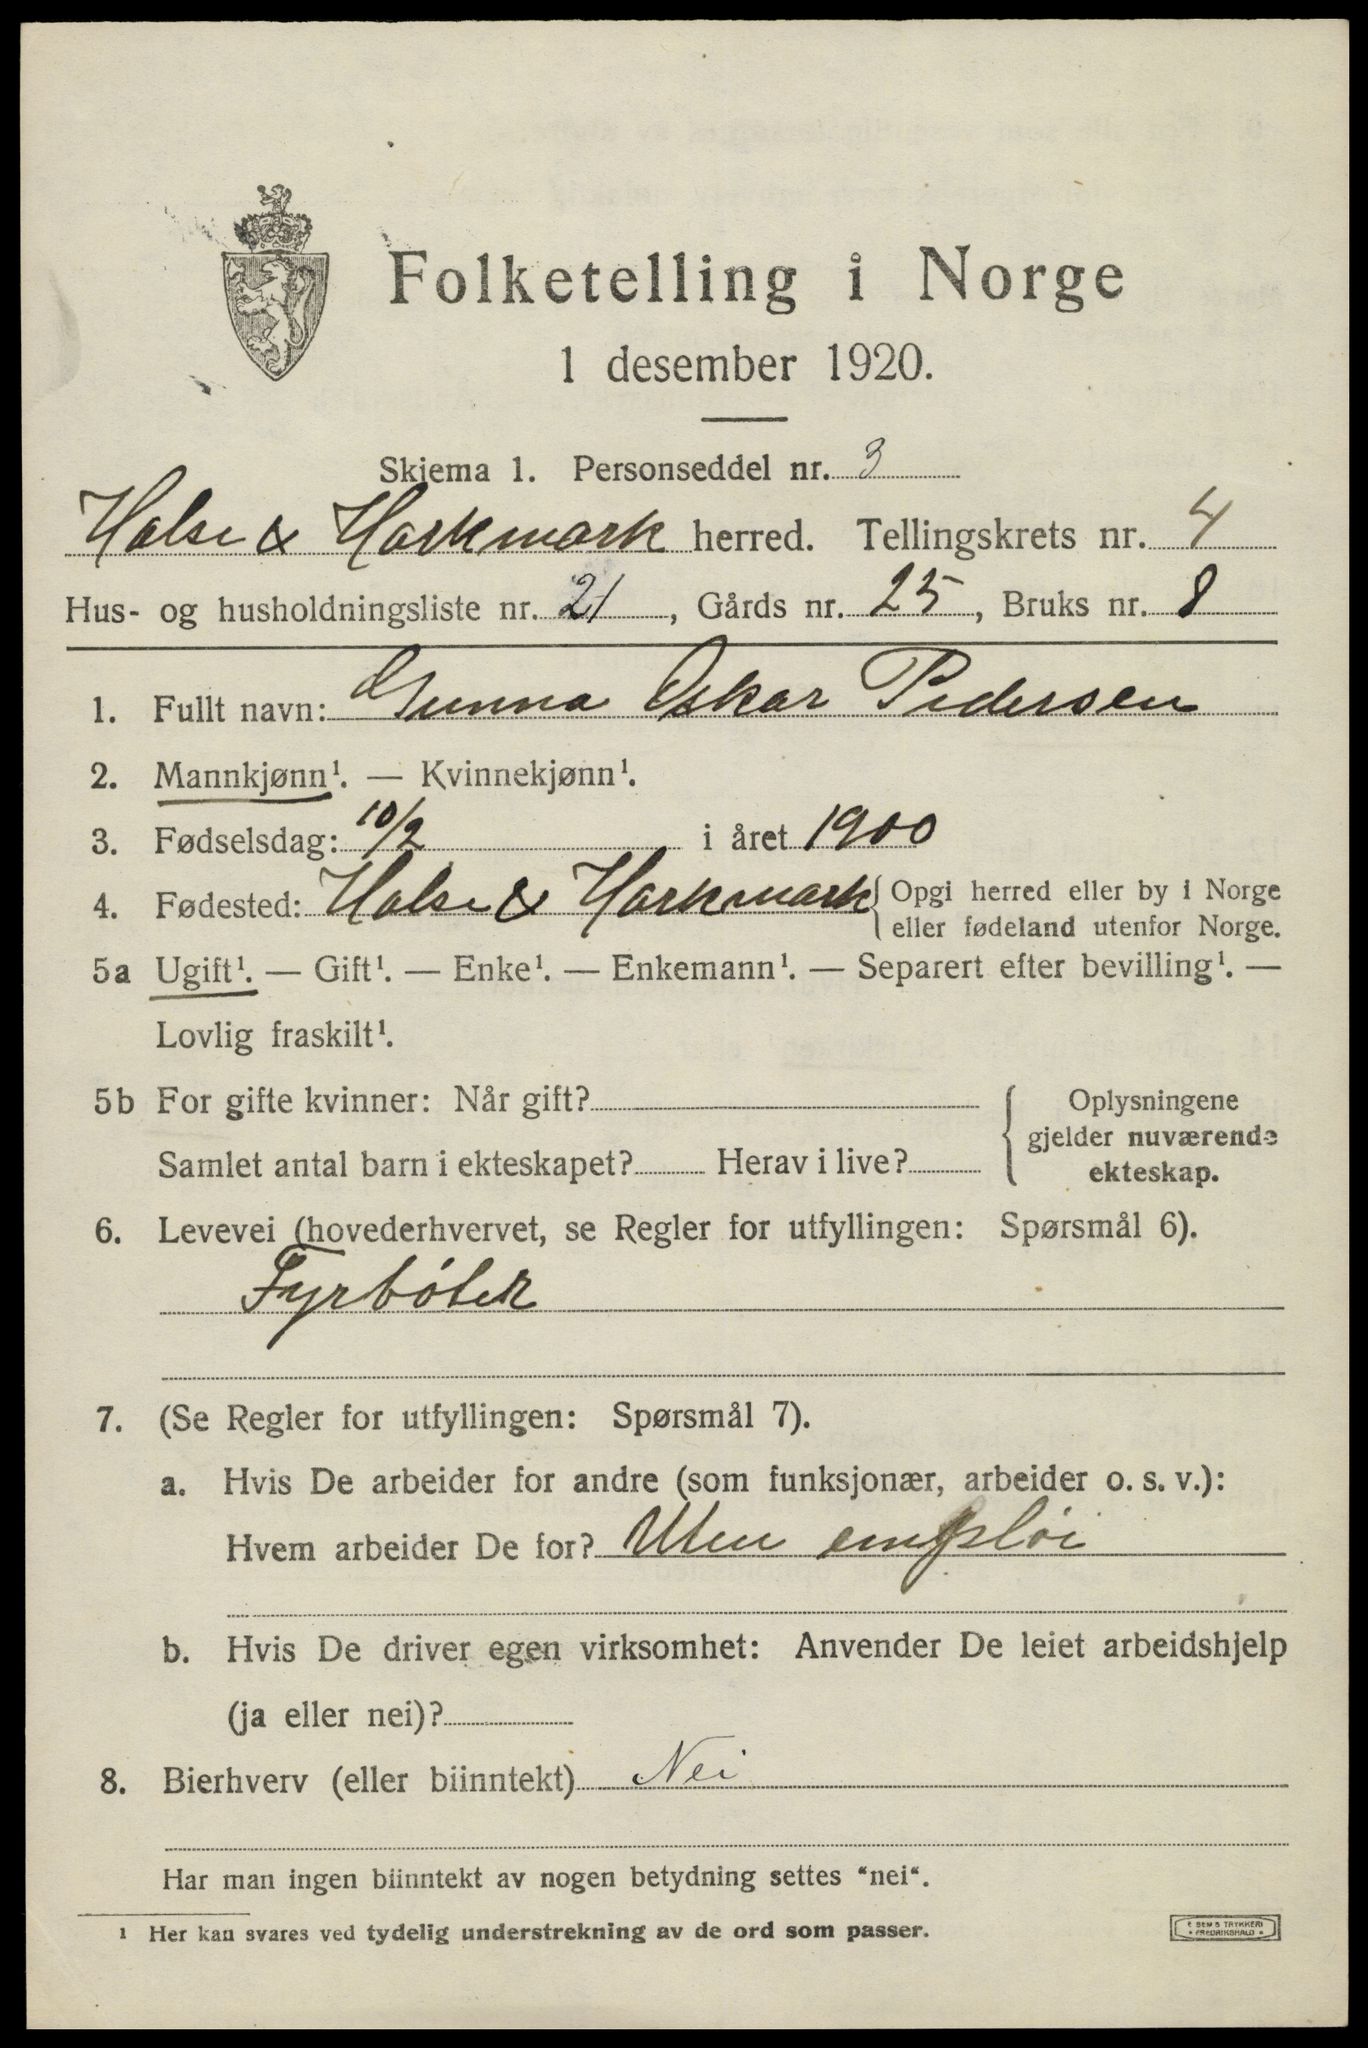 Folketelling i Norge
1 desember 1920.
Skjema 1. Personseddel nr. 3
Halse & Harkmark herred. Tellingskrets nr. 4
Hus- og husholdningsliste nr. 21, Gårds nr. 25, Bruks nr. 8
1. Fullt navn: Gunna Oskar Pedersen
2. Mannkjønn¹. — Kvinnekjønn¹.
3. Fødselsdag: 10/2 i året 1900
4. Fødested: Halse & Harkmark { Opgi herred eller by i Norge
eller fødeland utenfor Norge.
5a Ugift¹. — Gift¹. — Enke¹. — Enkemann¹. — Separert efter bevilling¹. —
Lovlig fraskilt¹.
5b For gifte kvinner: Når gift?
Samlet antal barn i ekteskapet? Herav i live?
{ Oplysningene
gjelder nuværende
ekteskap.
6. Levevei (hovederhvervet, se Regler for utfyllingen: Spørsmål 6).
Fyrbøter
7. (Se Regler for utfyllingen: Spørsmål 7).
a. Hvis De arbeider for andre (som funksjonær, arbeider o. s. v.):
Hvem arbeider De for? Uten emplöi
b. Hvis De driver egen virksomhet: Anvender De leiet arbeidshjelp
(ja eller nei)?
8. Bierhverv (eller biinntekt) Nei
Har man ingen biinntekt av nogen betydning settes “nei“.
¹ Her kan svares ved tydelig understrekning av de ord som passer.
E SEM'S TRYKKERI
FREDRIKSHALD